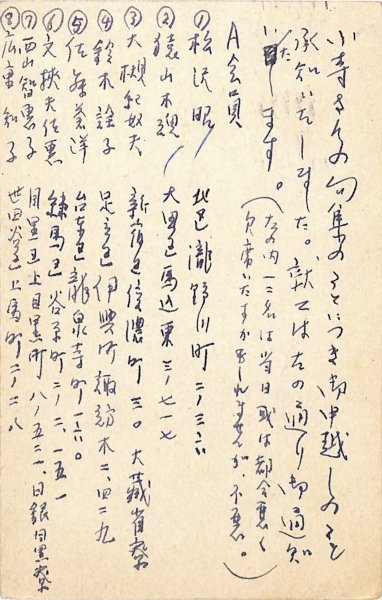 小寺さんの句集のことにつき御申越しのこと
承知いたしました。就ては左の通り御通知
いたします。
(左の内一二名は当日或は都合悪く
欠席いたすかもしれませんが、不悪。)
A会員
① 松沢昭 北区瀧野川町二ノ三六
② 猿山木魂 大田区馬込東三ノ七一七
③ 大槻紀奴夫 新宿区信濃町三〇 大蔵省寮
④ 鈴木詮子 足立区伊興町諏訪木二、四二九
⑤ 佐 蒼洋 台東区龍泉寺町一六〇
⑥ 佐恵 練馬区谷原町二ノ二、一五一
⑦ 西山智恵子 目黒区上目黒町八ノ五二一、日銀目黒寮
⑧ 知子 世田谷区上馬町二ノ二八